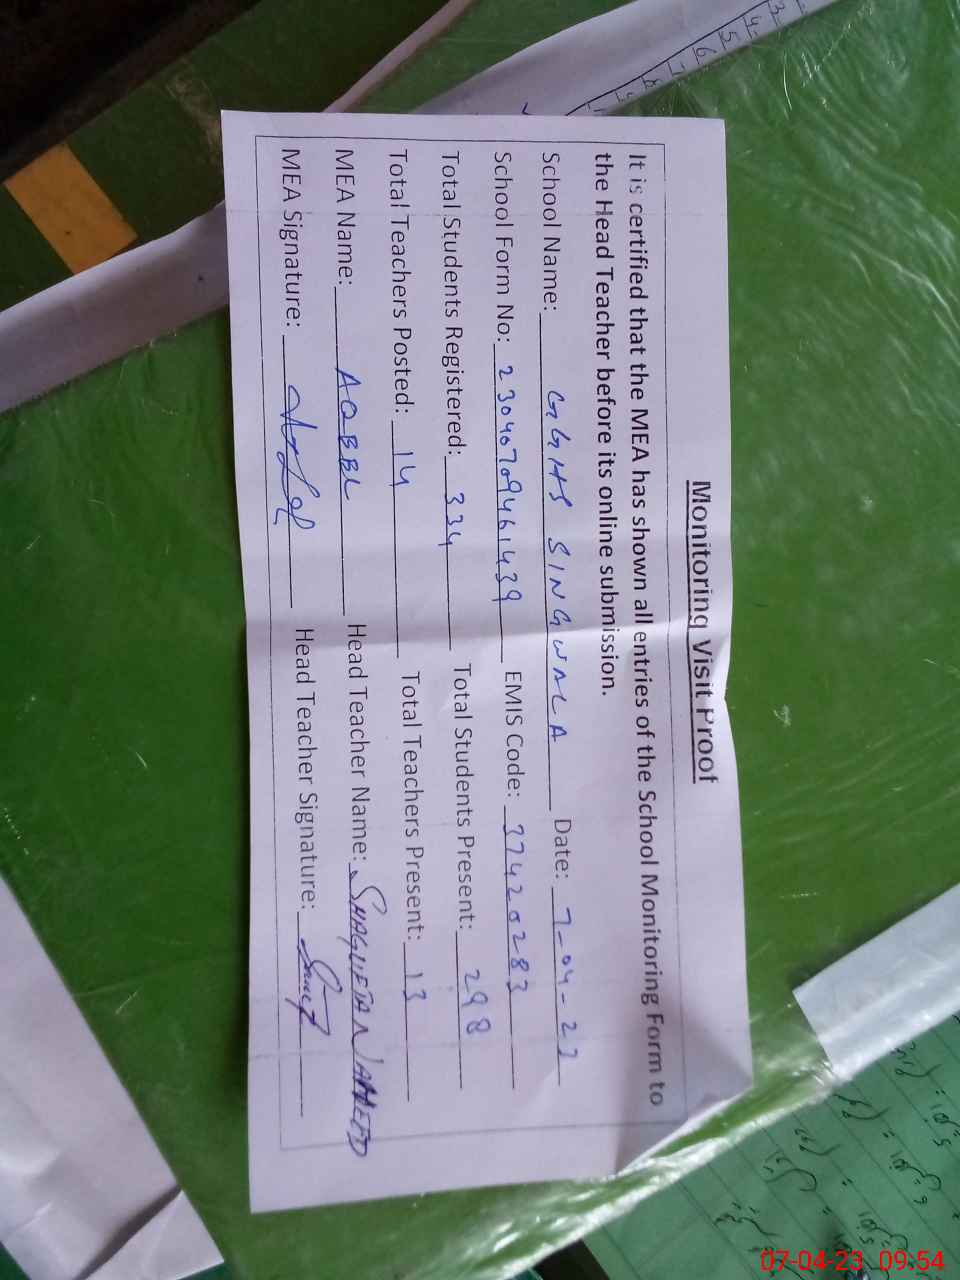 Monitoring Visit Proof
It is certified that the MEA has shown all entries of the School Monitoring Form to
the Head Teacher before its online submission.
School Name: GGHS SINGWALA Date: 7-04-23
School Form No: 23040709461439 EMIS Code: 37420283
Total Students Registered: 334 Total Students Present: 298
Total Teachers Posted: 14 Total Teachers Present: 13
MEA Name: Head Teacher Name: SHAGUFTA
MEA Signature: Head Teacher Signature:
07-04-23 09:54